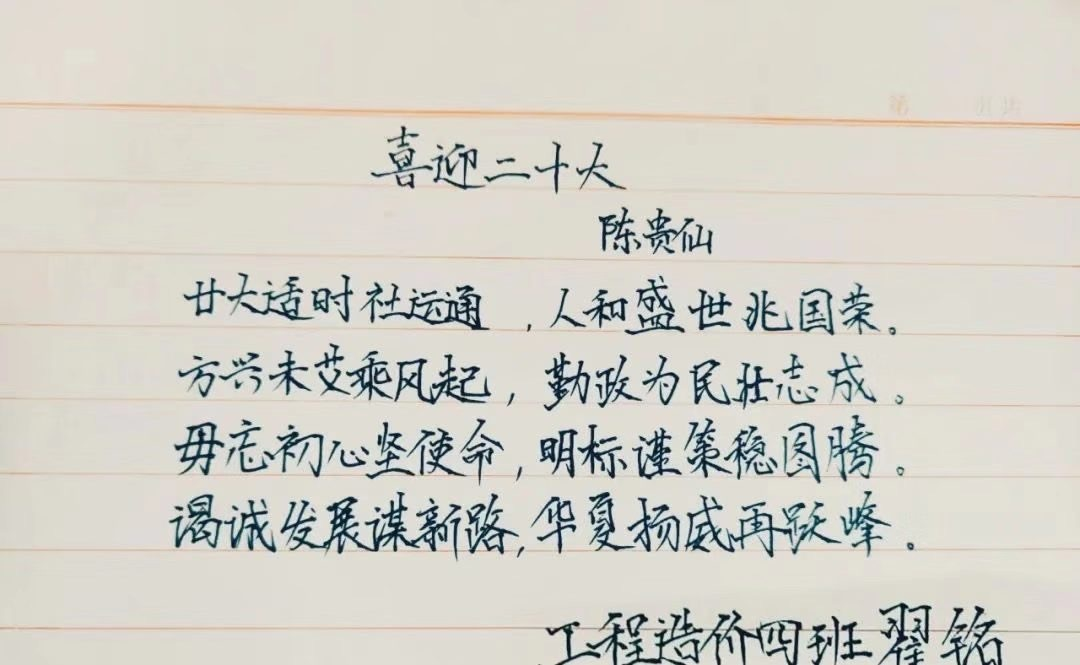 喜迎二十大
陈贵仙
廿大适时社运通，人和盛世兆国荣。
方兴未艾乘风起，勤政为民壮志成。
毋忘初心坚使命，明标谨策稳图腾。
谒诚发展谋新路，华夏扬威再跃峰。
工程造价四班翟铭